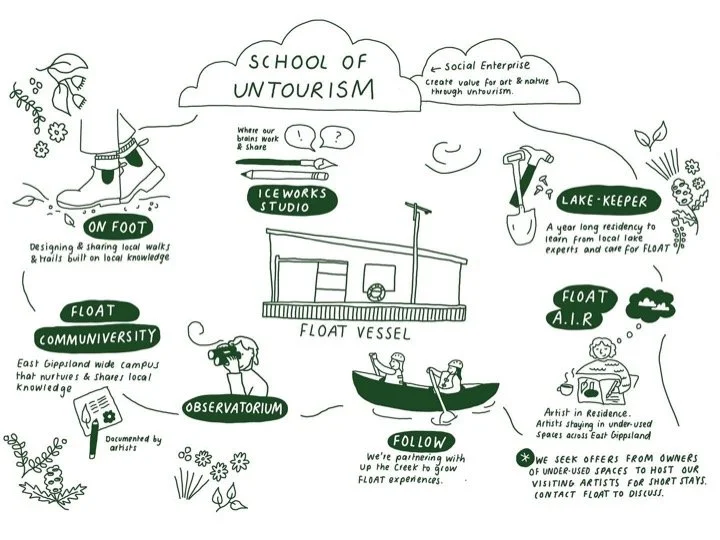 SCHOOL OF
UNTOURISM
← Social Enterprise
create value for art & nature
through untourism.
Where our
brains work
& share
! ?
ICEWORKS
STUDIO
ON FOOT
Designing & sharing local walks
& trails built on local knowledge
LAKE-KEEPER
A year long residency to
learn from local lake
experts and care for FLOAT
FLOAT VESSEL
FLOAT
COMMUNIVERSITY
East Gippsland wide campus
that nurtures & shares local
knowledge
Documented by
artists
OBSERVATORIUM
FOLLOW
We're partnering with
up the Creek to grow
FLOAT experiences.
FLOAT
A.I.R
Artist in Residence.
Artists staying in under-used
spaces across East Gippsland
* WE SEEK OFFERS FROM OWNERS
OF UNDER-USED SPACES TO HOST OUR
VISITING ARTISTS FOR SHORT STAYS.
CONTACT FLOAT TO DISCUSS.